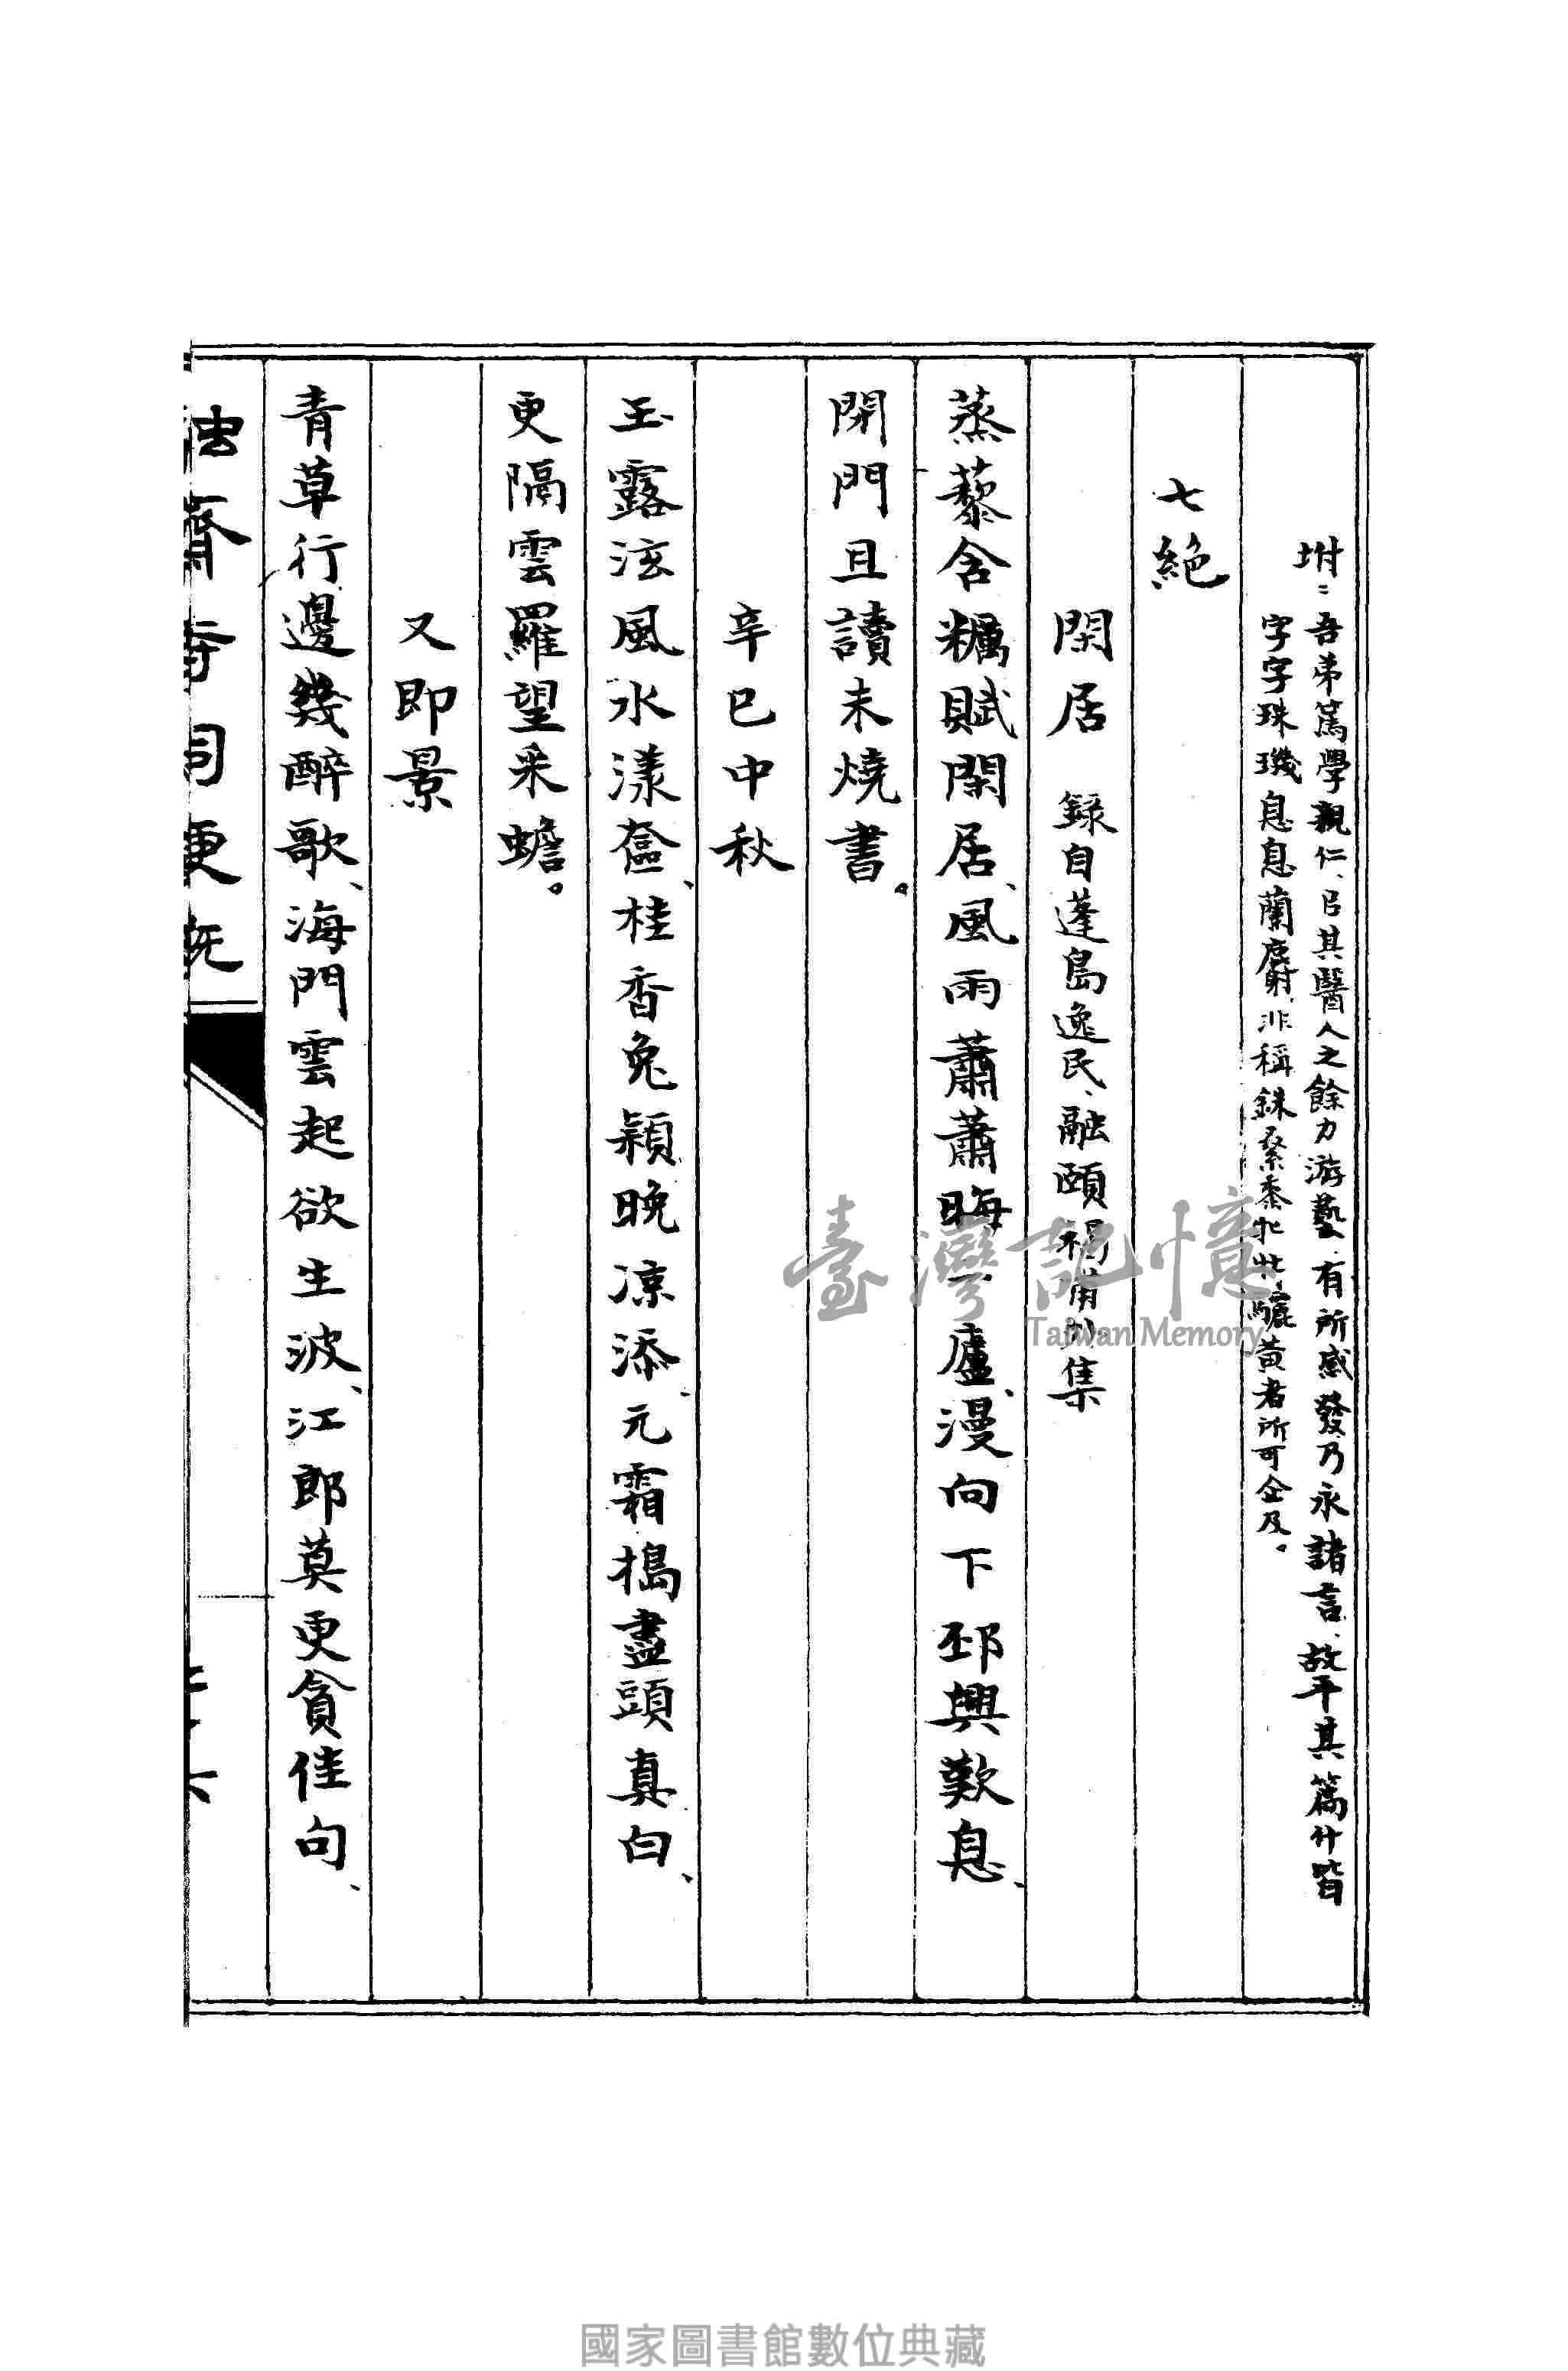 坿：吾弟篤學親仁、㠯其醫人之餘力游藝、有所感發、乃永諸言、故平其篇什皆
字字珠璣、息息蘭麝、非稱銖桑黍牝牡驪黃者所可企及。
七絕
閑居　錄自蓬島逸民、融頤褐甫外集
蒸藜含糲賦閑居、風雨蕭蕭晦廬、漫向下邳興歎息、
閉門且讀未燒書。
辛巳中秋
玉露泫風水漾奩、桂香兔穎晚凉添、元霜搗盡頭真白、
更隔雲羅望采蟾。
又即景
青草行邊幾醉歌、海門雲起欲生波、江郎莫更貪佳句、
臺灣記憶
Taiwan Memory
國家圖書館數位典藏